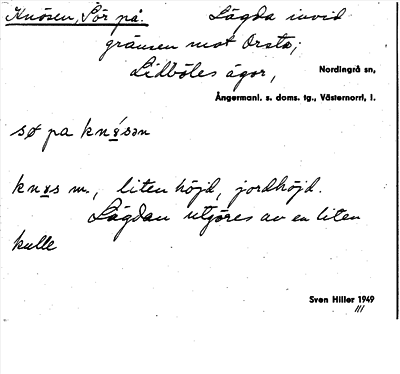 Knösen, Sör på. Lägda invid
gränsen mot Orsta;
Lidböles ägor, Nordingrå sn,
Ångermanl. s. doms. tg., Västernorrl. l.
sø pa knǿsən
knøs m., liten höjd, jordhöjd.
Lägdan utgöres av en liten
kulle
Sven Hiller 1949